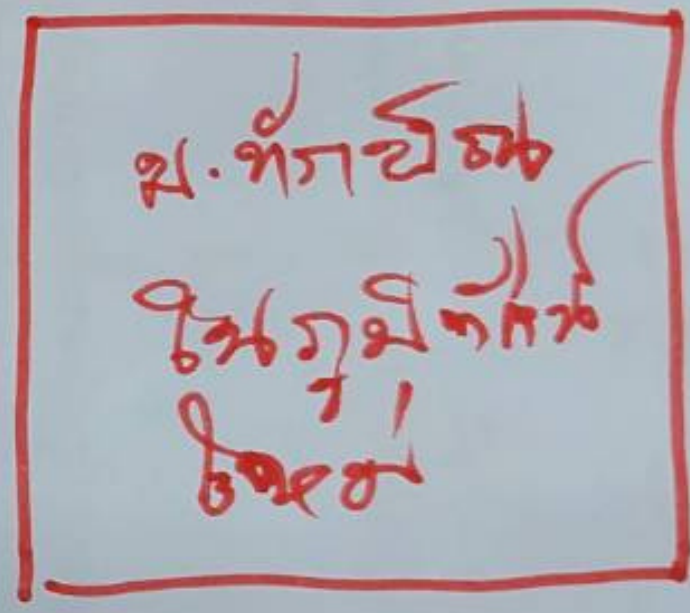 ม.ทักษิณ
ในภูมิทัศน์
ใหม่